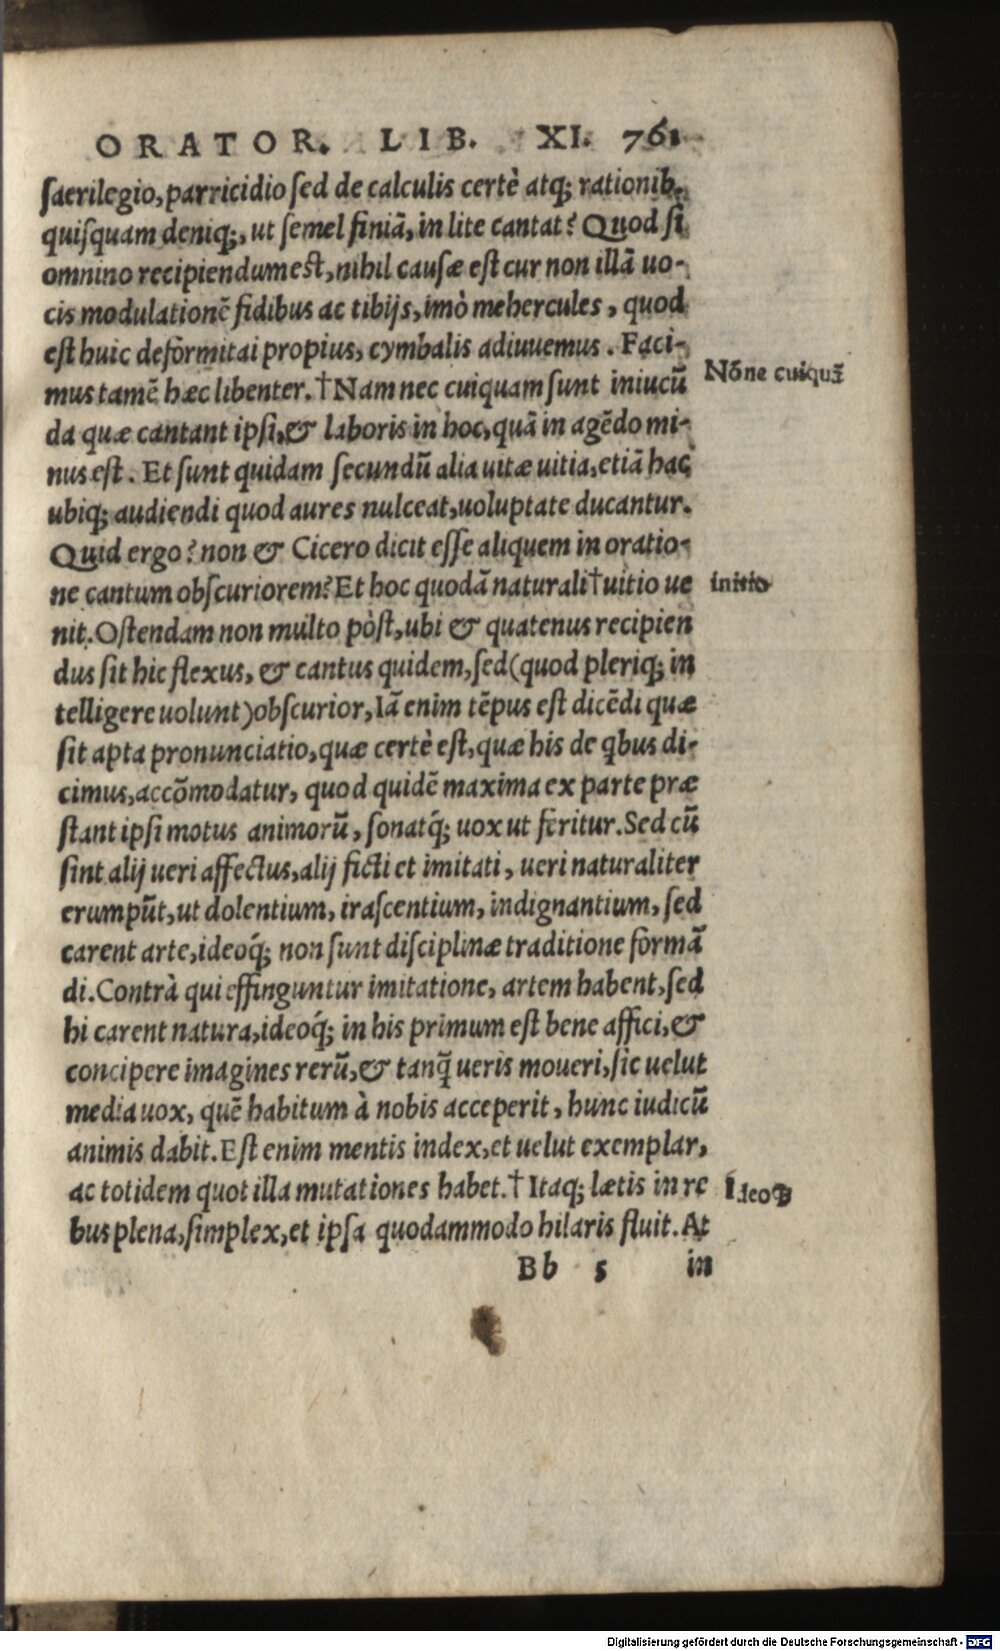 ORATOR. LIB. XI. 761
sacrilegio, parricidio sed de calculis certè atq; rationib.
quisquam deniq;, ut semel finiã, in lite cantat? Quod si
omnino recipiendum est, nihil causæ est cur non illã uo-
cis modulationẽ fidibus ac tibijs, imò mehercules, quod
est huic deformitai propius, cymbalis adiuuemus. Faci-
mus tamẽ hæc libenter. †Nam nec cuiquam sunt iniucũ
Nõne cuiquã
da quæ cantant ipsi, & laboris in hoc, quã in agẽdo mi-
nus est. Et sunt quidam secundũ alia uitæ uitia, etiã hac
ubiq; audiendi quod aures nulceat, uoluptate ducantur.
Quid ergo? non & Cicero dicit esse aliquem in oratio-
ne cantum obscuriorem? Et hoc quodã naturali †uitio ue
initio
nit. Ostendam non multo pòst, ubi & quatenus recipien
dus sit hic flexus, & cantus quidem, sed (quod pleriq; in
telligere uolunt) obscurior, Iã enim tẽpus est dicẽdi quæ
sit apta pronunciatio, quæ certè est, quæ his de qbus di-
cimus, accõmodatur, quod quidẽ maxima ex parte præ
stant ipsi motus animorũ, sonatq́; uox ut feritur. Sed cũ
sint alij ueri affectus, alij ficti et imitati, ueri naturaliter
erumpũt, ut dolentium, irascentium, indignantium, sed
carent arte, ideoq́; non sunt disciplinæ traditione formã
di. Contrà qui effinguntur imitatione, artem habent, sed
hi carent natura, ideoq́; in his primum est bene affici, &
concipere imagines rerũ, & tanq̃ ueris moueri, sic uelut
media uox, quẽ habitum à nobis acceperit, hunc iudicũ
animis dabit. Est enim mentis index, et uelut exemplar,
ac totidem quot illa mutationes habet. † Itaq; lætis in re
Ideoq;
bus plena, simplex, et ipsa quodammodo hilaris fluit. At
Bb 5 in
Digitalisierung gefördert durch die Deutsche Forschungsgemeinschaft - DFG